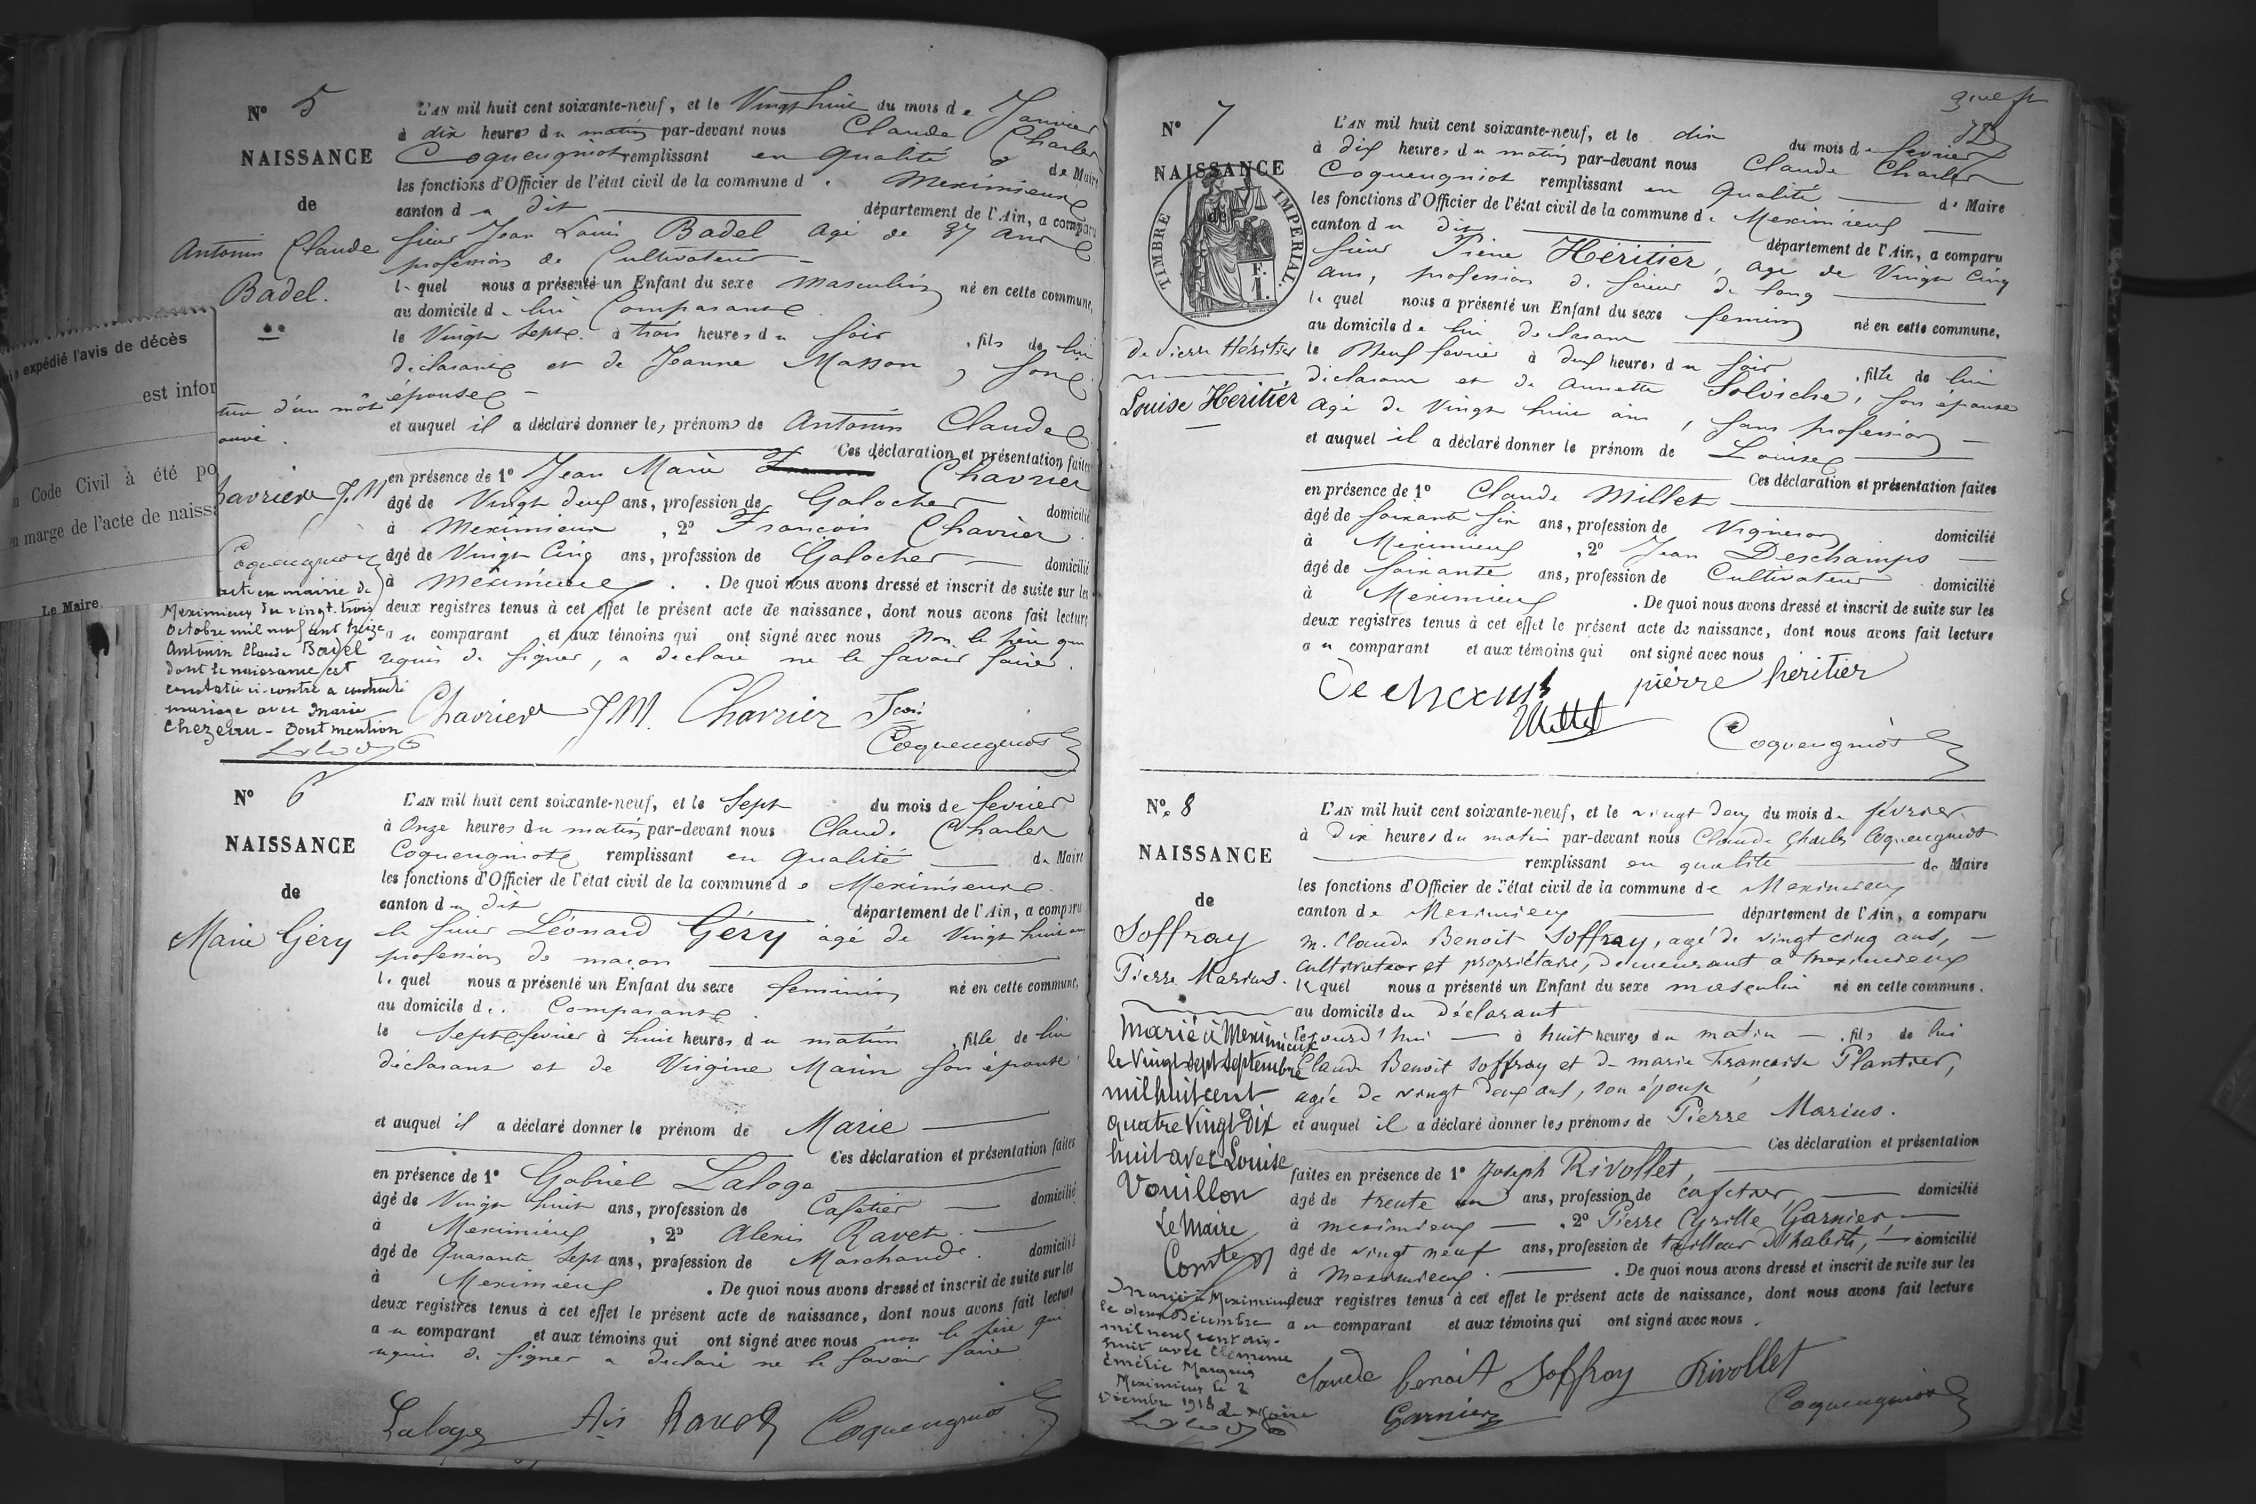 N° 5
NAISSANCE
de
Antonin Claude
Badel.
L'AN mil huit cent soixante-neuf, et le Vingt huit du mois de Janvier
à dix heures du matin par-devant nous Claude Charles
Coquengniot remplissant en qualité de Maire
les fonctions d'Officier de l'état civil de la commune de Meximieux
canton du dit département de l'Ain, a comparu
sieur Jean Louis Badel agé de 37 ans
profession de Cultivateur
lequel nous a présenté un Enfant du sexe masculin né en cette commune,
au domicile de lui Comparant
le Vingt Sept à trois heures du soir, fils de lui
déclarant et de Jeanne Masson, son
épouse
et auquel il a déclaré donner les prénoms de Antonin Claude
Ces déclaration et présentation faites
en présence de 1° Jean Marie Chavrier
âgé de Vingt deux ans, profession de Galocher domicilié
à Meximieux, 2° François Chavrier
âgé de Vingt Cinq ans, profession de Galocher domicilié
à Meximieux. De quoi nous avons dressé et inscrit de suite sur les
deux registres tenus à cet effet le présent acte de naissance, dont nous avons fait lecture
au comparant et aux témoins qui ont signé avec nous Non le père qui
requis de signer, a déclaré ne le savoir faire.
Chavrier J.M. Chavrier Fcois
Coquengniot
expédié l'avis de décès
est infor
Code Civil à été po
en marge de l'acte de naiss
Le Maire.
d'un mot
Chavrier J.M
Coquengniot
acte en mairie de
Meximieux du vingt-trois
Octobre mil neuf cent treize
Antonin Claude Badel
dont la naissance est
constatée ci-contre a contracté
mariage avec Marie
Chezeau - Dont mention
N° 6
NAISSANCE
de
Marie Géry
L'AN mil huit cent soixante-neuf, et le Sept du mois de février
à Onze heures du matin par-devant nous Claude Charles
Coquengniot remplissant en qualité de Maire
les fonctions d'Officier de l'état civil de la commune de Meximieux
canton du dit département de l'Ain, a comparu
le sieur Léonard Géry âgé de Vingt huit ans
profession de maçon
lequel nous a présenté un Enfant du sexe féminin né en cette commune,
au domicile de Comparant
le Sept février à huit heures du matin, fille de lui
déclarant et de Virginie Marin son épouse
et auquel il a déclaré donner le prénom de Marie
Ces déclaration et présentation faites
en présence de 1° Gabriel Laloge
âgé de Vingt huit ans, profession de Cafetier domicilié
à Meximieux, 2° Alexis Ravet
âgé de Quarante Sept ans, profession de Marchand domicilié
à Meximieux. De quoi nous avons dressé et inscrit de suite sur les
deux registres tenus à cet effet le présent acte de naissance, dont nous avons fait lecture
au comparant et aux témoins qui ont signé avec nous non le père qui
requis de signer a déclaré ne le savoir faire
Laloge Ais Ravet Coquengniot
N° 7
NAISSANCE
de
TIMBRE IMPERIAL.
F.
1.
de Pierre Héritier
Louise Héritier
L'AN mil huit cent soixante-neuf, et le dix du mois de février
à dix heures du matin par-devant nous Claude Charles
Coquengniot remplissant en qualité de Maire
les fonctions d'Officier de l'état civil de la commune de Meximieux
canton du dit département de l'Ain, a comparu
sieur Pierre Héritier, agé de Vingt Cinq
ans, profession de scieur de long
lequel nous a présenté un Enfant du sexe feminin né en cette commune,
au domicile de lui declarant
le Neuf fevrier à deux heures du soir, fille de lui
déclarant et de Annette Solviche, son épouse
Agé de Vingt huit ans, sans profession
et auquel il a déclaré donner le prénom de Louise
Ces déclaration et présentation faites
en présence de 1° Claude Millet
âgé de soixante six ans, profession de Vigneron domicilié
à Meximieux, 2° Jean Deschamps
âgé de soixante ans, profession de Cultivateur domicilié
à Meximieux. De quoi nous avons dressé et inscrit de suite sur les
deux registres tenus à cet effet le présent acte de naissance, dont nous avons fait lecture
au comparant et aux témoins qui ont signé avec nous
pièrre héritier
Millet
Coquengniot
N° 8
NAISSANCE
de
Soffray
Pierre Marius.
L'AN mil huit cent soixante-neuf, et le vingt deux du mois de février
à Dix heures du matin par-devant nous Claude Charles Coquengniot
remplissant en qualité de Maire
les fonctions d'Officier de l'état civil de la commune de Meximieux
canton de Meximieux département de l'Ain, a comparu
M. Claude Benoit Soffray, agé de vingt cinq ans,
cultivateur et propriétaire, demeurant à Meximieux
lequel nous a présenté un Enfant du sexe masculin né en cette commune.
au domicile du Déclarant
cejourd'hui à huit heures du matin, fils de lui
Claude Benoit Soffray et de marie Francoise Plantier,
agée de vingt deux ans, son épouse
et auquel il a déclaré donner les prénoms de Pierre Marius.
Ces déclaration et présentation
faites en présence de 1° Joseph Rivollet,
âgé de trente un ans, profession de cafetier, domicilié
à meximieux, 2° Pierre Cyrille Garnier,
âgé de vingt neuf ans, profession de tailleur d'habits, domicilié
à Meximieux. De quoi nous avons dressé et inscrit de suite sur les
deux registres tenus à cet effet le présent acte de naissance, dont nous avons fait lecture
au comparant et aux témoins qui ont signé avec nous.
claude benoit Soffray Rivollet
Garnier Coquengniot
Marié à Meximieux
le Vingt-sept septembre
mil huit cent
quatre Vingt Dix
huit avec Louise
Vouillon
Le Maire
Marié à Meximieux
le deux Décembre
mil neuf cent dix-
huit avec Clémence
Emélie
Meximieux le 2
Décembre 1918 Le Maire